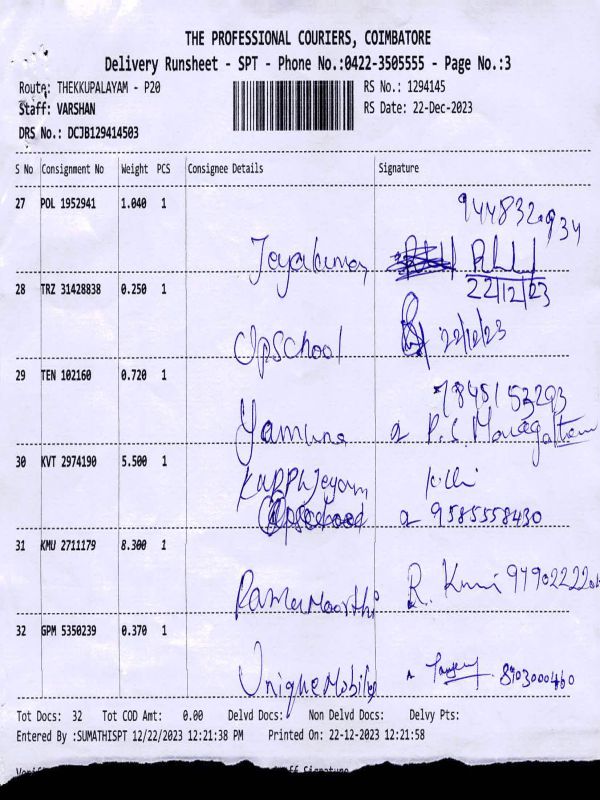 THE PROFESSIONAL COURIERS, COIMBATORE
Delivery Runsheet - SPT - Phone No.:0422-3505555 - Page No.:3
Route: THEKKUPALAYAM - P20 RS No.: 1294145
Staff: VARSHAN RS Date: 22-Dec-2023
DRS No.: DCJB129414503
S No Consignment No Weight PCS Consignee Details Signature
27 POL 1952941 1.040 1
Jeyakumar
22/12/23
28 TRZ 31428838 0.250 1
Upschool 22/12/23
29 TEN 102160 0.720 1 7845153293
Yamuna
30 KVT 2974190 5.500 1
9585558430
31 KMU 2711179 8.300 1
Ramamoorthi R.
32 GPM 5350239 0.370 1
Unique Mobiles
Tot Docs: 32 Tot COD Amt: 0.00 Delvd Docs: Non Delvd Docs: Delvy Pts:
Entered By :SUMATHISPT 12/22/2023 12:21:38 PM Printed On: 22-12-2023 12:21:58